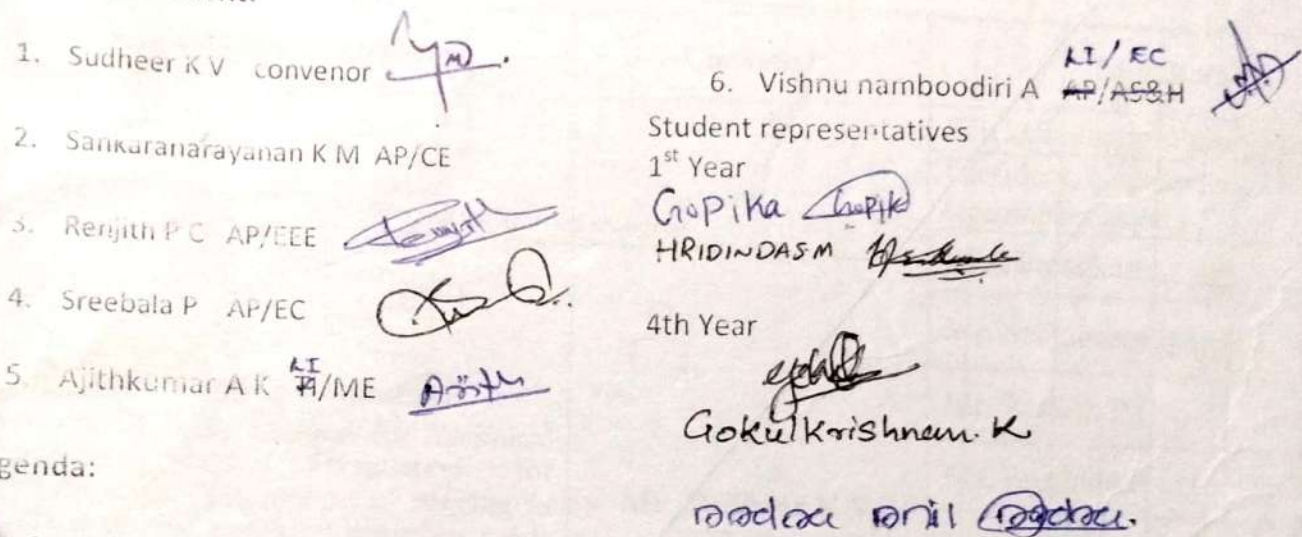 1. Sudheer K V convenor
2. Sankaranarayanan K M AP/CE
3. Renjith P C AP/EEE
4. Sreebala P AP/EC
5. Ajithkumar A K LI/ME
genda:
6. Vishnu namboodiri A LI/EC AP/AS&H
Student representatives
1st Year
Gopika Gopika
HRIDINDAS M
4th Year
Gokulkrishnan. K
anil